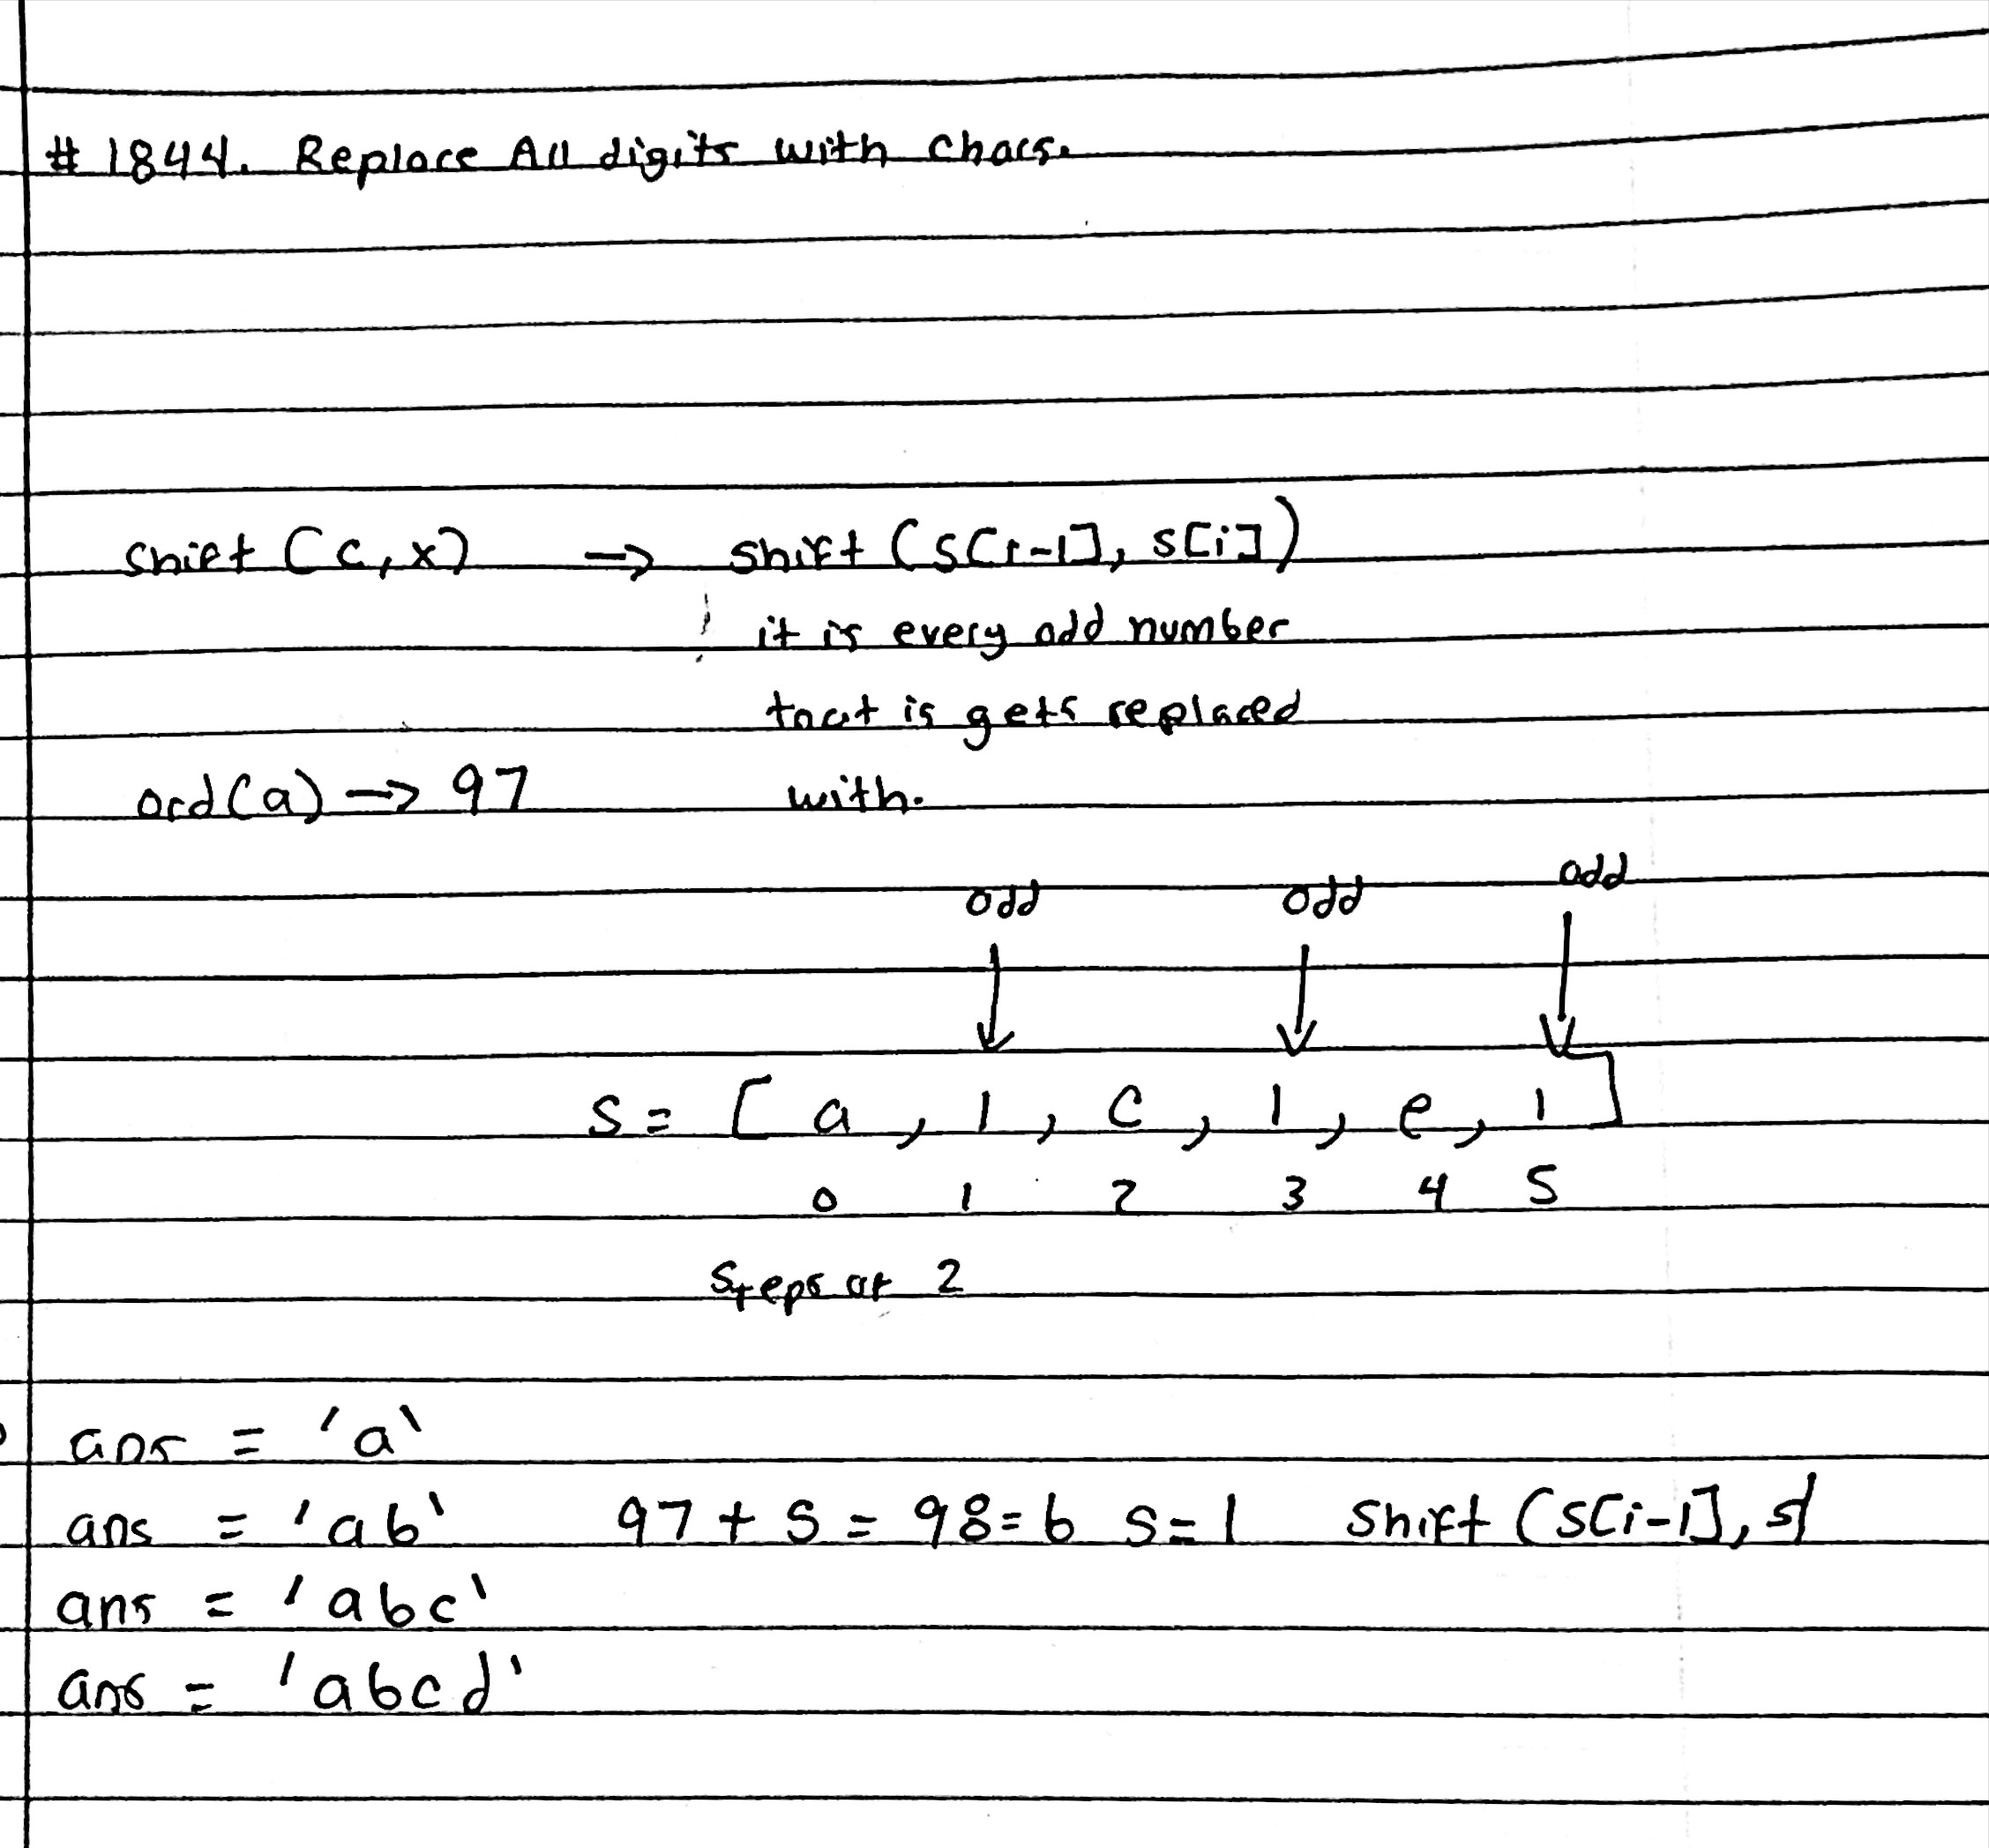 # 1844. Replace All digits with chars.
shift (c, x) → shift (s[i-1], s[i])
it is every odd number
that is gets replaced
ord(a) → 97 with.
odd odd odd
s = [a, 1, c, 1, e, 1]
0 1 2 3 4 5
Steps at 2
ans = 'a'
ans = 'ab' 97 + S = 98 = b S = 1 Shift (s[i-1], s
ans = 'abc'
ans = 'abcd'